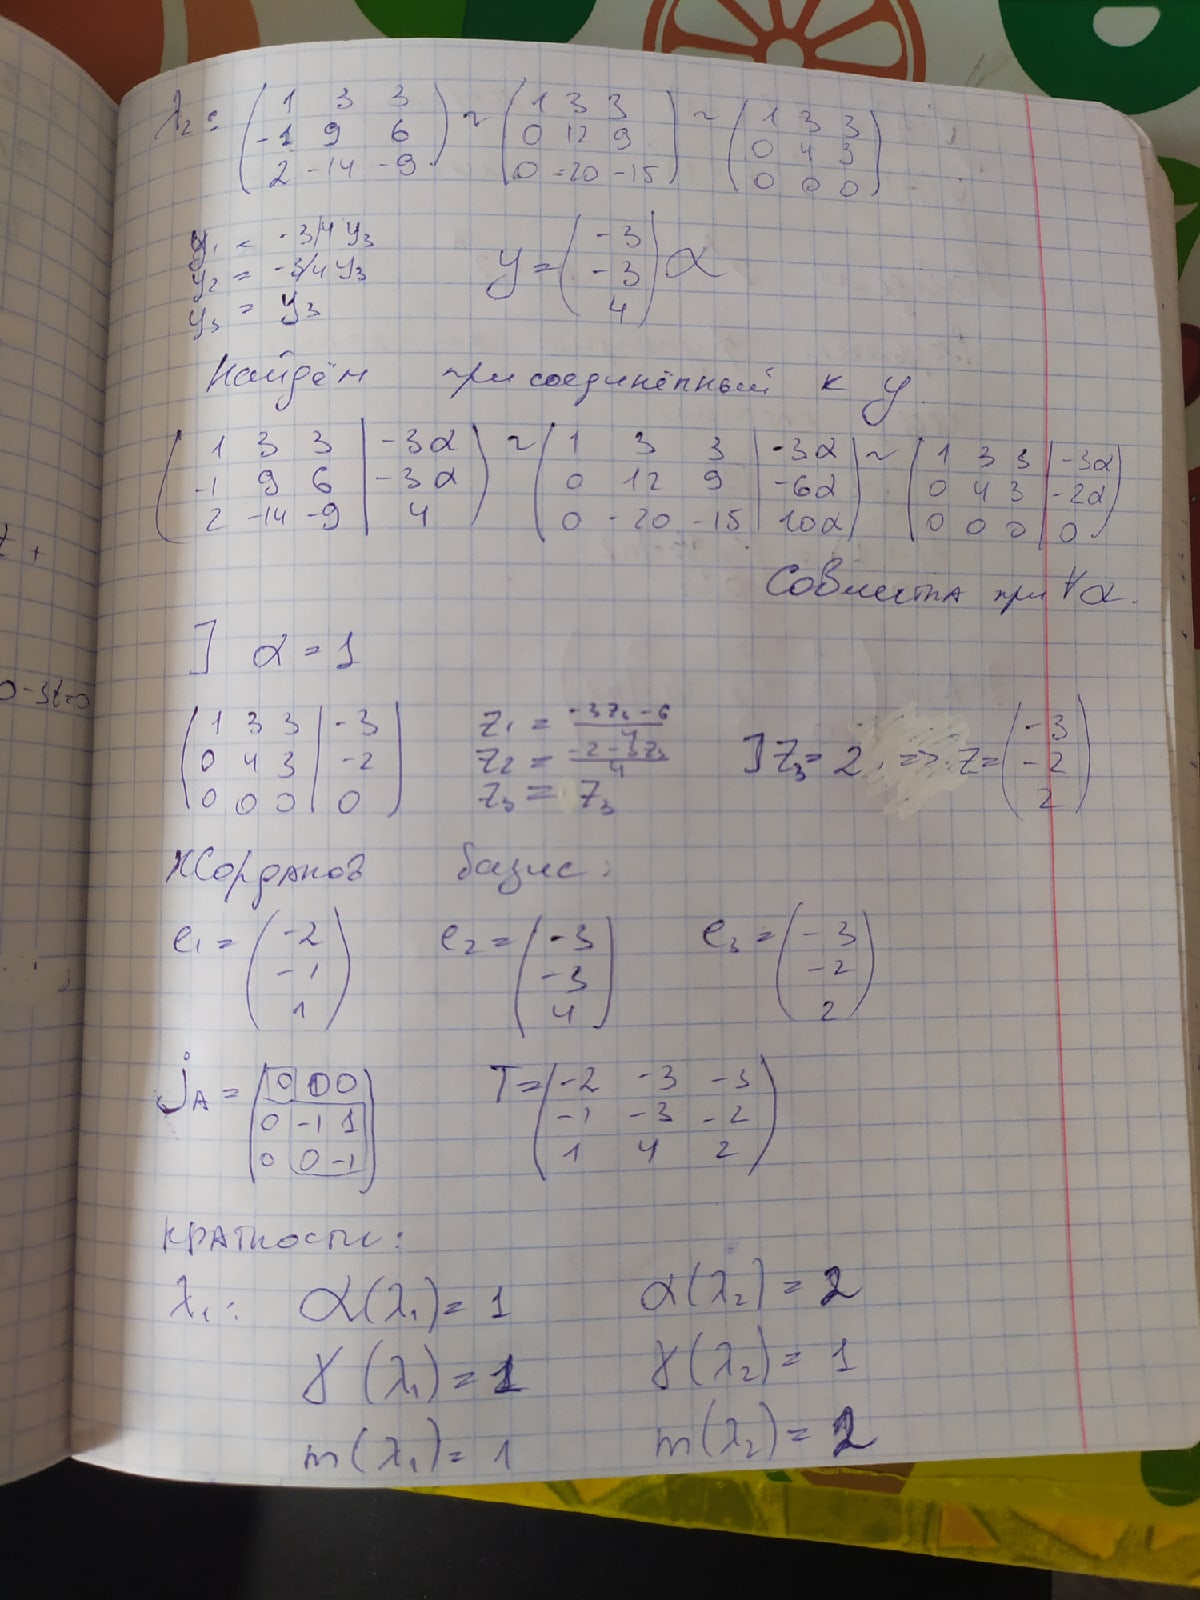 λ₂: (1 3 3; -1 9 6; 2 -14 -9) ~ (1 3 3; 0 12 9; 0 -20 -15) ~ (1 3 3; 0 4 3; 0 0 0)
y₁ = -3/4 y₃
y₂ = -3/4 y₃
y₃ = y₃
y = (-3; -3; 4) α
Найдём присоединённый к y
(1 3 3 | -3α; -1 9 6 | -3α; 2 -14 -9 | 4) ~ (1 3 3 | -3α; 0 12 9 | -6α; 0 -20 -15 | 10α) ~ (1 3 3 | -3α; 0 4 3 | -2α; 0 0 0 | 0)
Совместна при ∀α.
] α = 1
(1 3 3 | -3; 0 4 3 | -2; 0 0 0 | 0)
z₁ = (-3z₃ - 6)/4
z₂ = (-2 - 3z₃)/4
z₃ = z₃
] z₃ = 2 => z = (-3; -2; 2)
Жорданов базис:
e₁ = (-2; -1; 1) e₂ = (-3; -3; 4) e₃ = (-3; -2; 2)
J_A = (0 0 0; 0 -1 1; 0 0 -1) T = (-2 -3 -3; -1 -3 -2; 1 4 2)
Кратности:
λ₁: α(λ₁) = 1 α(λ₂) = 2
γ(λ₁) = 1 γ(λ₂) = 1
m(λ₁) = 1 m(λ₂) = 2
0-3t=0